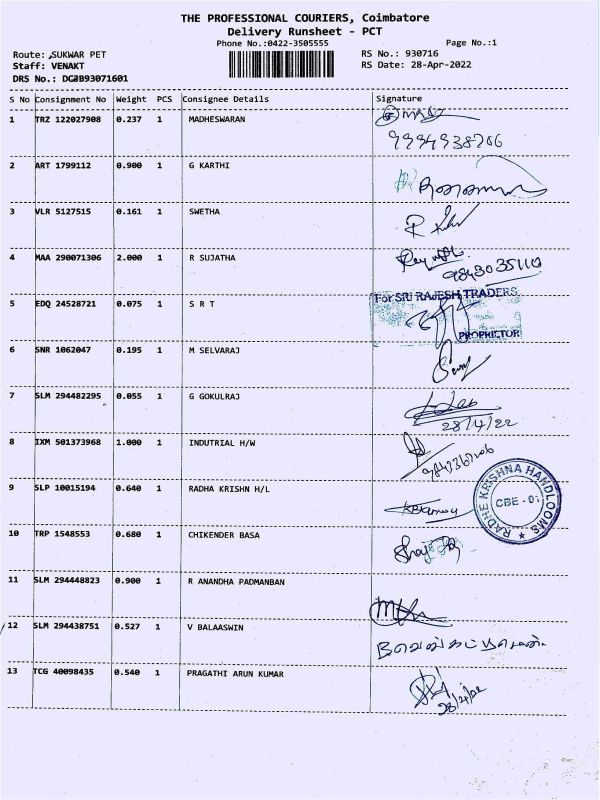 THE PROFESSIONAL COURIERS, Coimbatore
Delivery Runsheet - PCT
Phone No.:0422-3505555
Page No.:1
Route: SUKWAR PET
RS No.: 930716
Staff: VENAKT
RS Date: 28-Apr-2022
DRS No.: DGJB93071601
S No Consignment No Weight PCS Consignee Details Signature
1 TRZ 122027908 0.237 1 MADHESWARAN
9994938706
2 ART 1799112 0.900 1 G KARTHI
3 VLR 5127515 0.161 1 SWETHA
4 MAA 290071306 2.000 1 R SUJATHA
9843035110
5 EDQ 24528721 0.075 1 S R T
For SRI RAJESH TRADERS
PROPRIETOR
6 SNR 1062047 0.195 1 M SELVARAJ
7 SLM 294482295 0.055 1 G GOKULRAJ
28/4/22
8 IXM 501373968 1.000 1 INDUTRIAL H/W
9 SLP 10015194 0.640 1 RADHA KRISHN H/L
RADHE KRISHNA HANDLOOMS
CBE - 01
10 TRP 1548553 0.680 1 CHIKENDER BASA
11 SLM 294448823 0.900 1 R ANANDHA PADMANBAN
12 SLM 294438751 0.527 1 V BALAASWIN
13 TCG 40098435 0.540 1 PRAGATHI ARUN KUMAR
28/4/22